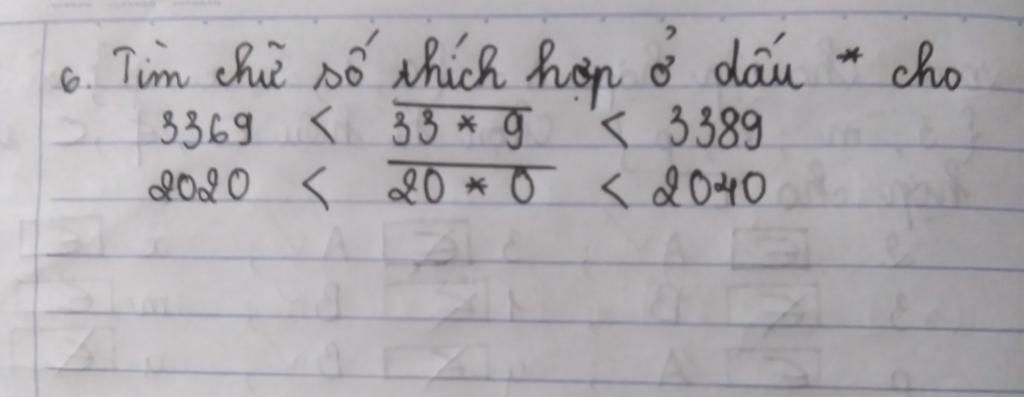 6. Tìm chữ số thích hợp ở dấu * cho
3369 < 33 * 9 < 3389
2020 < 20 * 0 < 2040